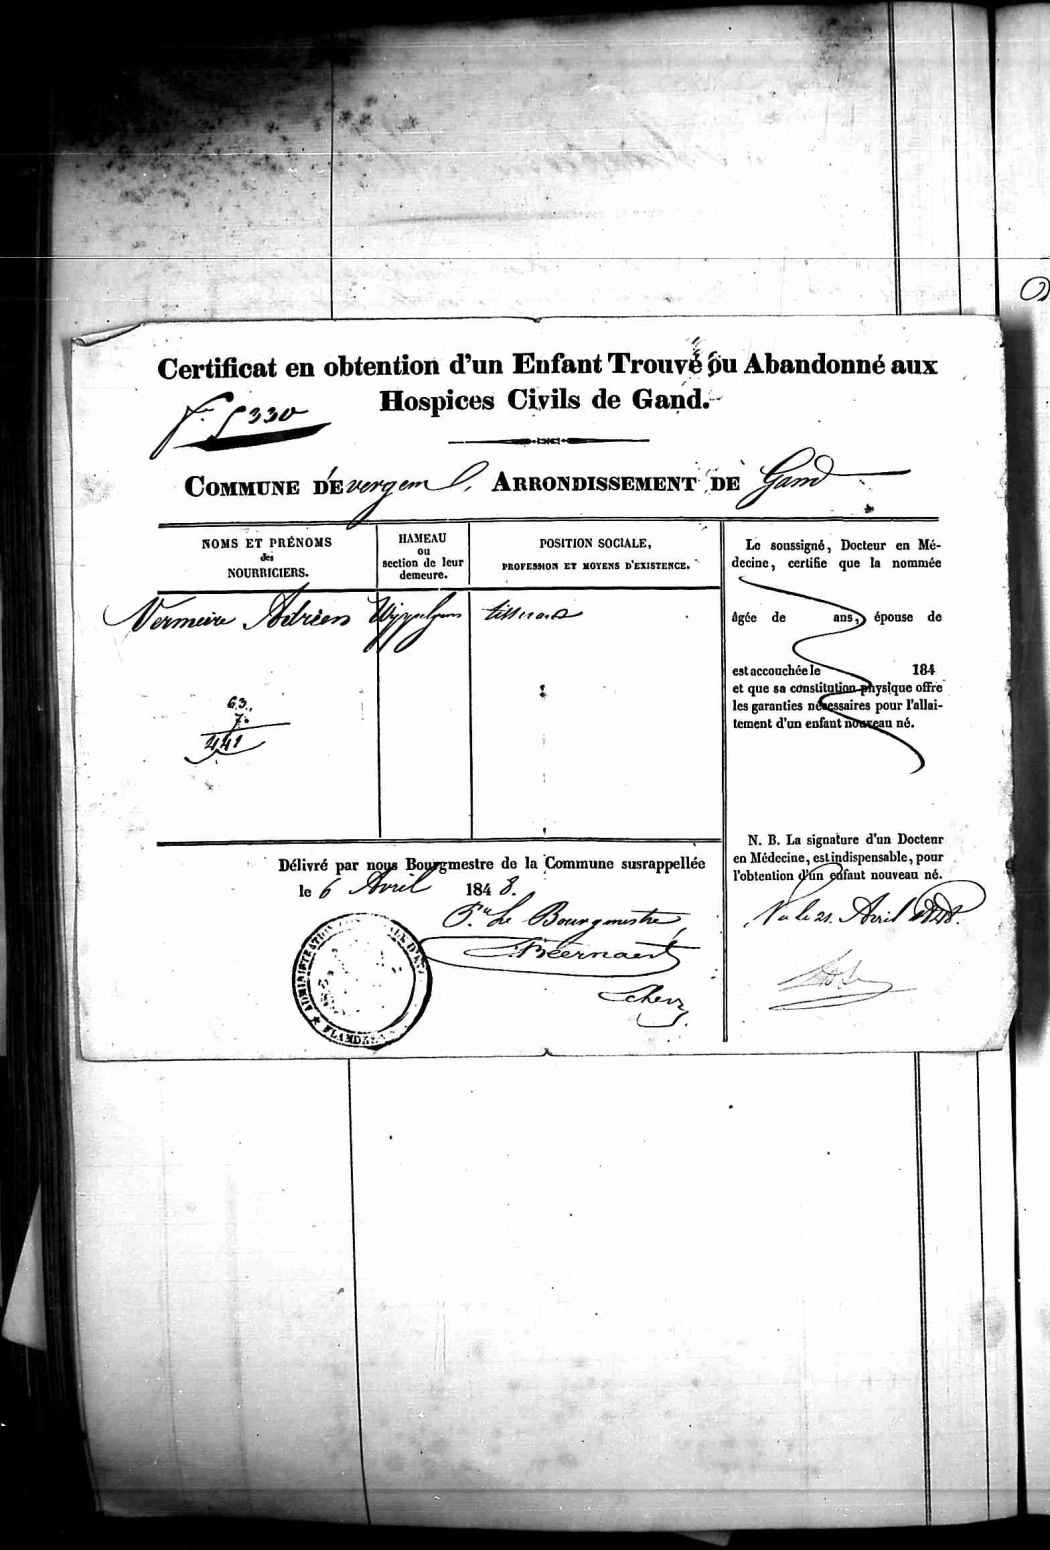 Certificat en obtention d'un Enfant Trouvé ou Abandonné aux
Hospices Civils de Gand.
330
COMMUNE D'Evergem, ARRONDISSEMENT DE Gand
NOMS ET PRÉNOMS
des
NOURRICIERS.
HAMEAU
ou
section de leur
demeure.
POSITION SOCIALE,
PROFESSION ET MOYENS D'EXISTENCE.
Vermeire Adrien Wippelgem tisserand
63.
7.
441
Le soussigné, Docteur en Mé-
decine, certifie que la nommée
âgée de ans, épouse de
est accouchée le 184
et que sa constitution physique offre
les garanties nécessaires pour l'allai-
tement d'un enfant nouveau né.
N. B. La signature d'un Docteur
en Médecine, est indispensable, pour
l'obtention d'un enfant nouveau né.
Vu le 21. Avril 1848.
Délivré par nous Bourgmestre de la Commune susrappellée
le 6 Avril 1848.
Le Bourgmestre,
Beernaert
Schev.
ADMINISTRATION